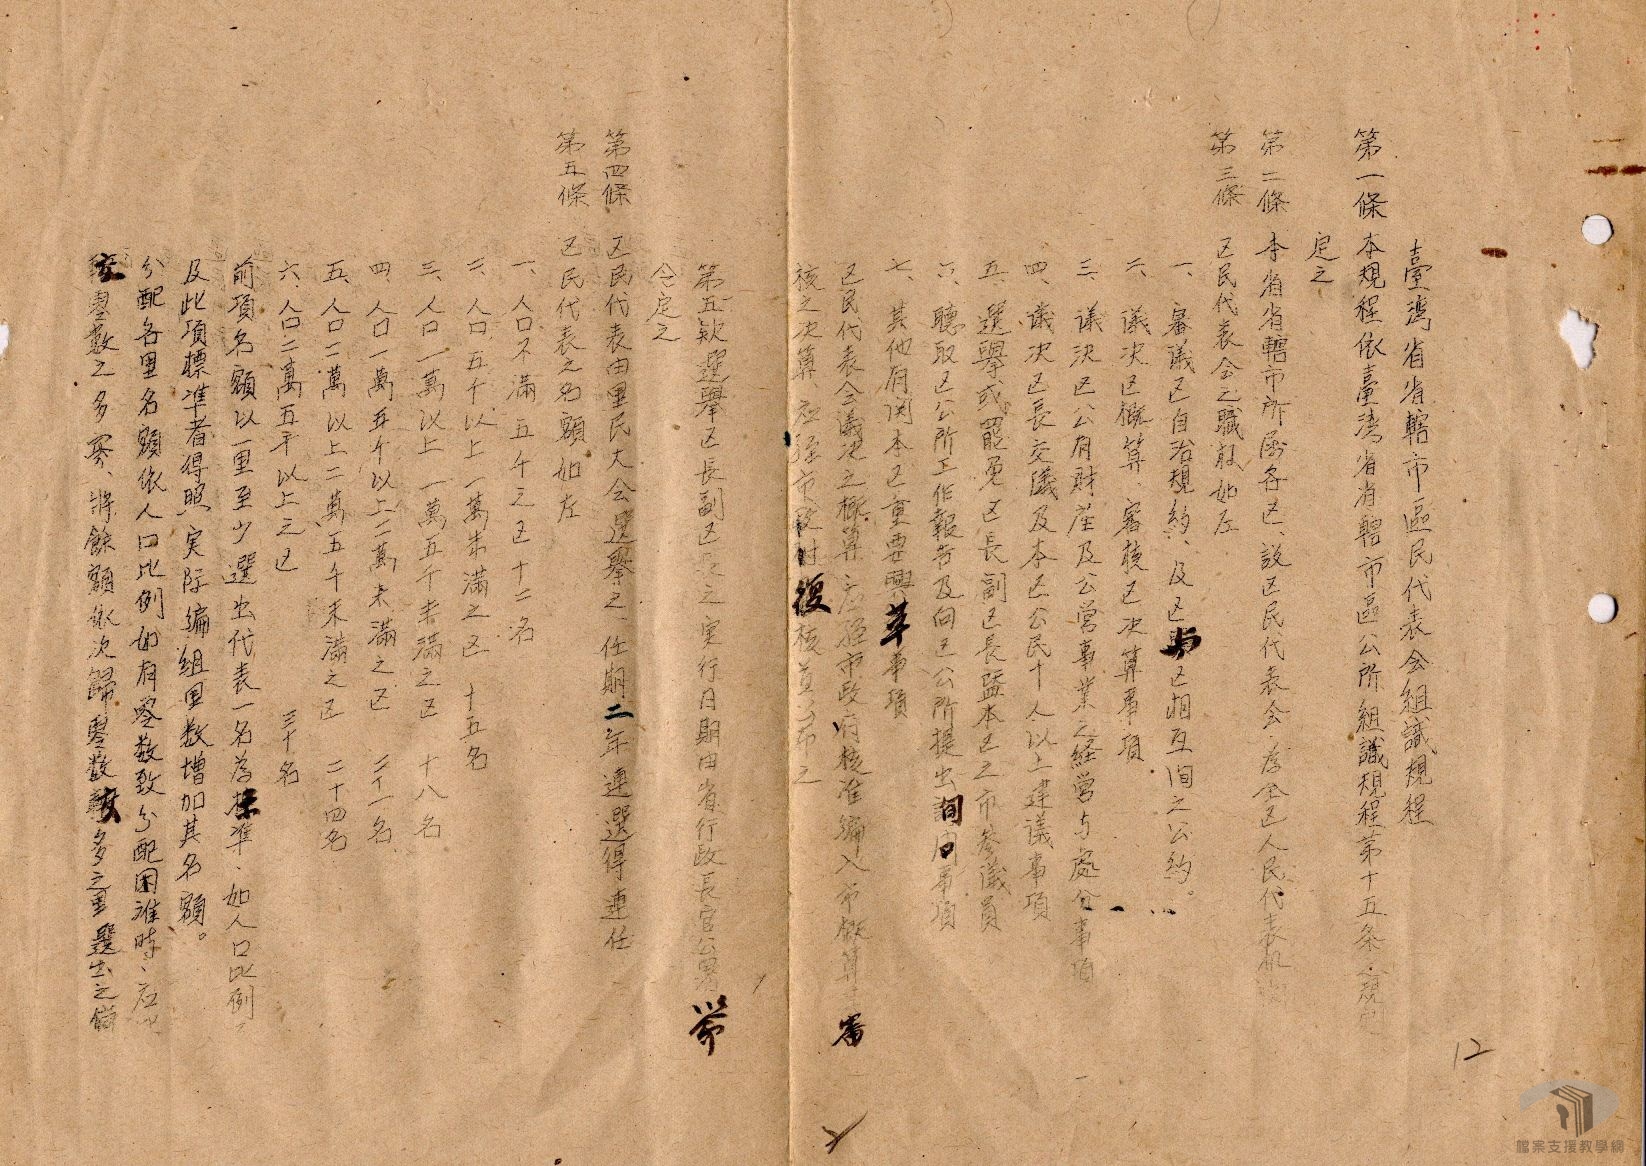 臺灣省省轄市區民代表会組識規程
第一條 本規程依臺湾省省轄市區公所組識規程第十五条規定
定之
第二條 本省省轄市所屬各区、設区民代表会為全区人民代表机関
第三條 区民代表会之職权如左
一、審議区自治規約、及区与区相互间之公約。
二、議决区概算、審核区决算事項
三、議决区公有財產及公営事業之経営与處分事項
四、議决区長交議及本区公民十人以上建議事項
五、選舉或罷免区長副区長暨本区之市參議員
六、聽取区公所工作報告及向区公所提出詢问事項
七、其他有関本区重要興革事項
区民代表会議决之概算應經市政府核准編入市概算 審
核之决算、应經市政府復核 公布之
第五欵選舉区長副区長之実行日期由省行政長官公署以命
令定之
第四條 区民代表由里民大会選舉之任期二年連選得連任
第五條 区民代表之名額如左
一、人口不滿五千之区 十二名
二、人口五千以上一萬未滿之区 十五名
三、人口一萬以上一萬五千未滿之区 十八名
四、人口一萬五千以上二萬未滿之区 二十一名
五、人口二萬以上二萬五千未滿之区 二十四名
六、人口二萬五千以上之区 三十名
前項名額以一里至少選出代表一名為標準、如人口比例不
及此項標準者得照実际編組里数增加其名額。
分配各里名額依人口比例如有零数致分配困难時、应
零數之多寡、將餘額依次歸零数較多之里選出之備
12
檔案支援教學網